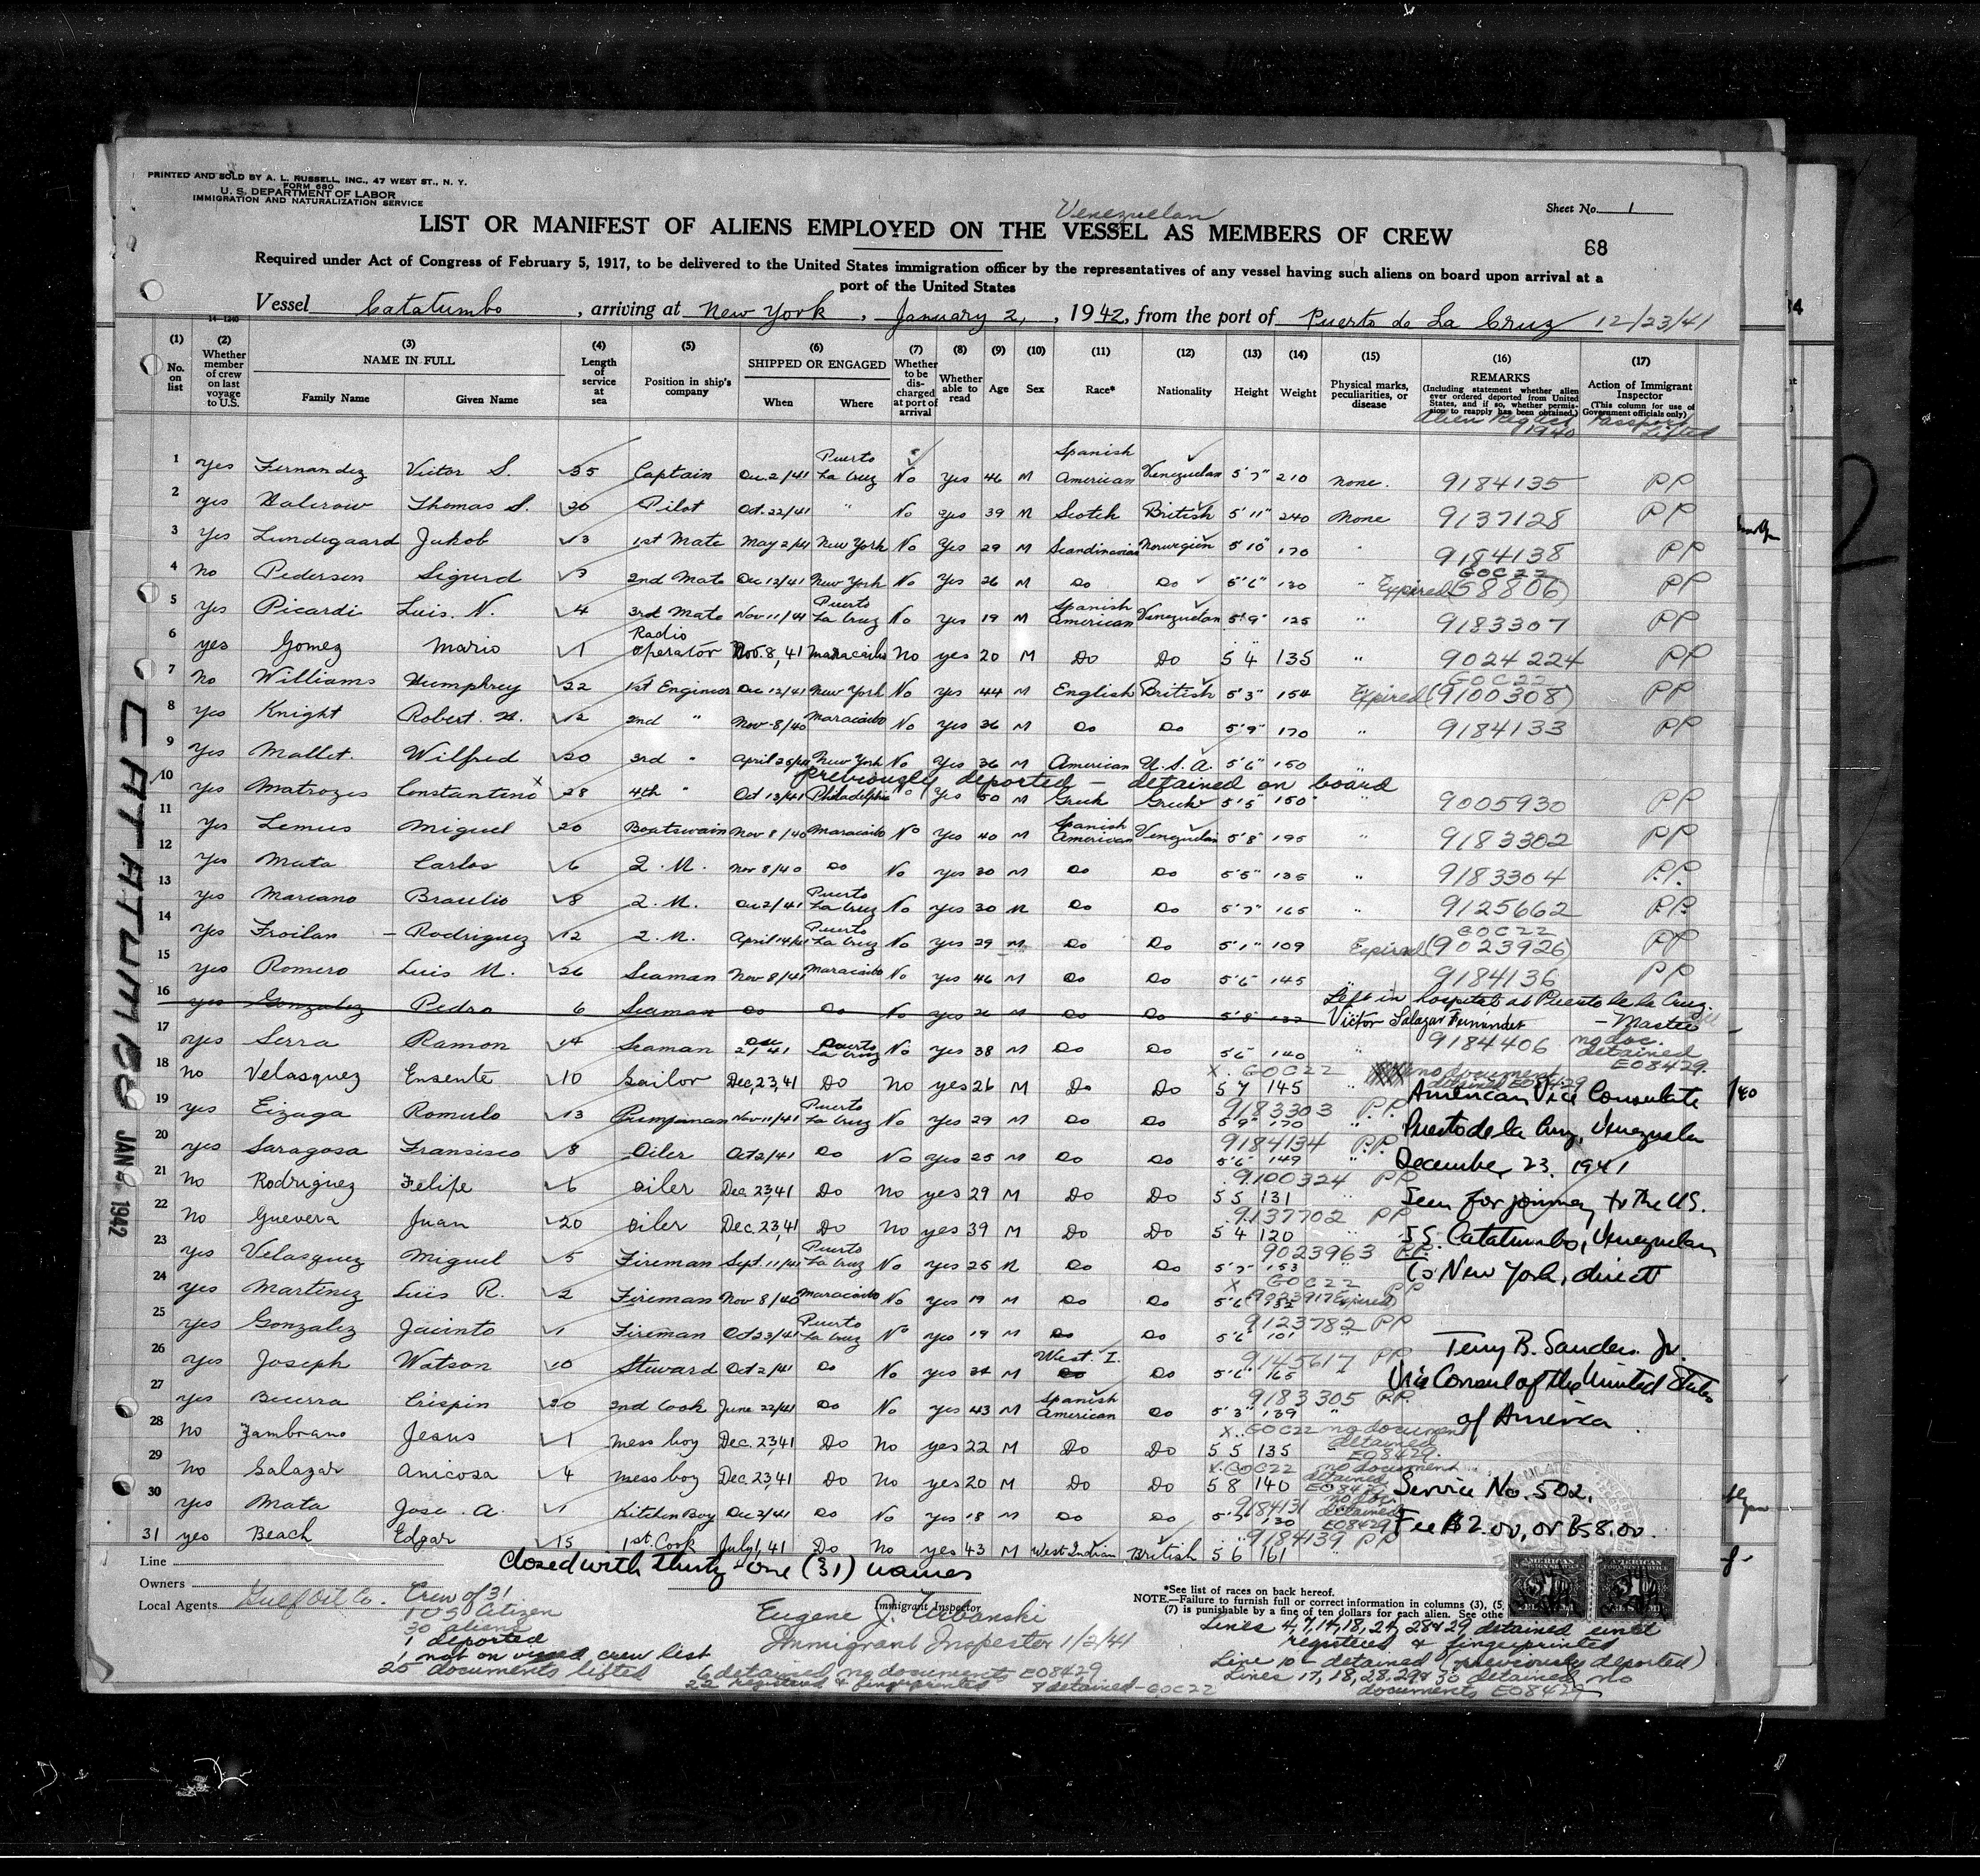 PRINTED AND SOLD BY A. L. RUSSELL, INC., 47 WEST ST., N. Y.
FORM 680
U. S. DEPARTMENT OF LABOR
IMMIGRATION AND NATURALIZATION SERVICE
Sheet No. 1
Venezuelan
LIST OR MANIFEST OF ALIENS EMPLOYED ON THE VESSEL AS MEMBERS OF CREW
68
Required under Act of Congress of February 5, 1917, to be delivered to the United States immigration officer by the representatives of any vessel having such aliens on board upon arrival at a
port of the United States
Vessel Catatumbo, arriving at New York, January 2, 1942, from the port of Puerto de La Cruz 12/23/41
14-1240
(1) No. on list
(2) Whether member of crew on last voyage to U.S.
(3) NAME IN FULL Family Name Given Name
(4) Length of service at sea
(5) Position in ship's company
(6) SHIPPED OR ENGAGED When Where
(7) Whether to be discharged at port of arrival
(8) Whether able to read
(9) Age
(10) Sex
(11) Race*
(12) Nationality
(13) Height
(14) Weight
(15) Physical marks, peculiarities, or disease
(16) REMARKS (Including statement whether alien ever ordered deported from United States, and if so, whether permission to reapply has been obtained.)
Alien Regist 1940
(17) Action of Immigrant Inspector (This column for use of Government officials only)
Passport Lifted
1 yes Fernandez Victor S. 35 Captain Dec. 2/41 Puerto La Cruz No Yes 46 M Spanish American Venezuelan 5'7" 210 none. 9184135 PP
2 yes Thomas S. 20 Pilot Oct. 22/41 " No Yes 39 M Scotch British 5'11" 240 None 9137128 PP
3 yes Lundegaard Jakob 3 1st Mate May 2/41 New York No Yes 29 M Scandinavian Norwegian 5'10" 170 " 9184138 PP
4 no Pedersen Sigurd 2nd Mate Dec 12/41 New York No Yes 26 M Do Do 5'6" 130 " GOC22 Expired (58806) PP
5 yes Picardi Luis. N. 4 3rd Mate Nov 11/41 Puerto La Cruz No Yes 19 M Spanish American Venezuelan 5'9" 125 " 9183307 PP
6 yes Gomez Mario 1 Radio operator Nov. 8, 41 Maracaibo No yes 20 M Do Do 5 4 135 " 9024224 PP
7 no Williams Humphrey 22 1st Engineer Dec 12/41 New York No yes 44 M English British 5'3" 154 GOC22 Expired (9100308) PP
8 yes Knight Robert. 12 2nd " Nov-8/40 Maracaibo No yes 36 M Do Do 5'9" 170 " 9184133 PP
9 yes Mallet. Wilfred 20 3rd " April New York No Yes 36 M American U.S.A. 5'6" 150 "
previously deported — detained on board
10 yes Matrozis Constantino x 28 4th " Oct 13/41 Philadelphia No Yes 50 M Greek Greek 5'5" 150 " 9005930 PP
11 yes Lemus Miguel 20 Boatswain Nov 8/40 Maracaibo No Yes 40 M Spanish American Venezuelan 5'8" 195 " 9183302 PP
12 yes Mata Carlos 6 Q.M. Nov 8/40 Do No yes 30 M Do Do 5'5" 135 " 9183304 P.P.
13 yes Marcano Braulio 8 Q.M. Dec 2/41 Puerto La Cruz No yes 30 M Do Do 5'7" 165 " 9125662 P.P.
14 yes Froilan - Rodriguez 12 Q.M. April 14/41 Puerto La Cruz No Yes 29 M Do Do 5'1" 109 GOC22 Expired (9023926) PP
15 yes Romero Luis M. 26 Seaman Nov 8/41 Maracaibo No Yes 46 M Do Do 5'6" 145 " 9184136 PP
16 yes Gonzalez Pedro 6 Seaman Do Do No yes 26 M Do Do 5'8" Left in hospital at Puerto la Cruz. Victor Salazar Fernandez - Master
17 yes Serra Ramon 14 Seaman Dec 2/41 Puerto La Cruz No Yes 38 M Do Do 5'6" 140 " 9184406 no doc. detained E08429.
18 no Velasquez Ensente 10 Sailor Dec, 23, 41 Do no yes 26 M Do Do 5 7 145 " X. GOC22 no document detained E08429
19 yes Eizaga Romulo 13 Pumpman Nov 11/41 Puerto La Cruz No Yes 29 M Do Do 5'9" 170 " 9183303 P.P.
20 yes Saragosa Fransisco 8 Oiler Oct 2/41 Do No Yes 25 M Do Do 5'6" 149 " 9184134 P.P.
21 no Rodriguez Felipe 6 oiler Dec. 23, 41 Do no yes 29 M Do Do 5 5 131 9100324 PP
22 no Guevera Juan 20 oiler Dec. 23, 41 Do no yes 39 M Do Do 5 4 120 " 9137702 PP
23 yes Velasquez Miguel 5 Fireman Sept. 11/41 Puerto La Cruz No yes 25 M Do Do 5'7" 153 9023963 P.P.
24 yes Martinez Luis R. 2 Fireman Nov 8/40 Maracaibo No Yes 19 M Do Do 5'6" 132 X GOC22 (9023917 Expired) PP
25 yes Gonzalez Jacinto 1 Fireman Oct 23/41 Puerto La Cruz No yes 19 M Do Do 5'6" 101 " 9123782 PP
26 yes Joseph Watson 10 Steward Oct 2/41 Do No yes 34 M West. I. Do Do 5'6" 165 9145617 PP
27 yes Becerra Crispin 20 2nd Cook June 22/41 Do No yes 43 M Spanish American Do 5'3" 139 " 9183305 P.P.
28 no Zambrano Jesus 1 mess boy Dec. 23 41 Do No yes 22 M Do Do 5 5 135 X. GOC22 no document detained E08429.
29 no Salazar Anicosa 4 mess boy Dec, 23, 41 Do no yes 20 M Do Do 5 8 140 X. GOC22 no document detained E08429
30 yes Mata Jose. A. 1 Kitchen Boy Dec 2/41 Do No yes 18 M Do Do 5'5" 130 9184131 no doc. detained E08429
31 yes Beach Edgar 15 1st. Cook July 1, 41 Do No yes 43 M West Indian British 5 6 161 " 9184139 PP
American Vice Consulate
Puerto de la Cruz, Venezuela
December 23. 1941
Seen for journey to the U.S.
S.S. Catatumbo, Venezuelan
to New York, direct
Terry B. Sanders Jr.
Vice Consul of the United States
of America
Service No. 502.
Fee $2.00, or Bs 8.00.
CATATUMBO JAN 2 1942
Closed with thirty-one (31) names
Line
Owners
Local Agents Gulf Oil Co.
Crew of 31
1 US Citizen
30 aliens
1 deported
1 not on visaed crew list
25 documents lifted
Eugene J. Urbanski
Immigrant Inspector
Immigrant Inspector 1/2/41
6 detained, no documents E08429
22 registered & fingerprinted 8 detained-GOC22
*See list of races on back hereof.
NOTE.—Failure to furnish full or correct information in columns (3), (5,
(7) is punishable by a fine of ten dollars for each alien. See othe
Lines 4, 7, 14, 18, 24, 28 & 29 detained until
registered & fingerprinted
Line 10 - detained (previously deported)
Lines 17, 18, 28, 29 & 30 detained no
documents E08429
2